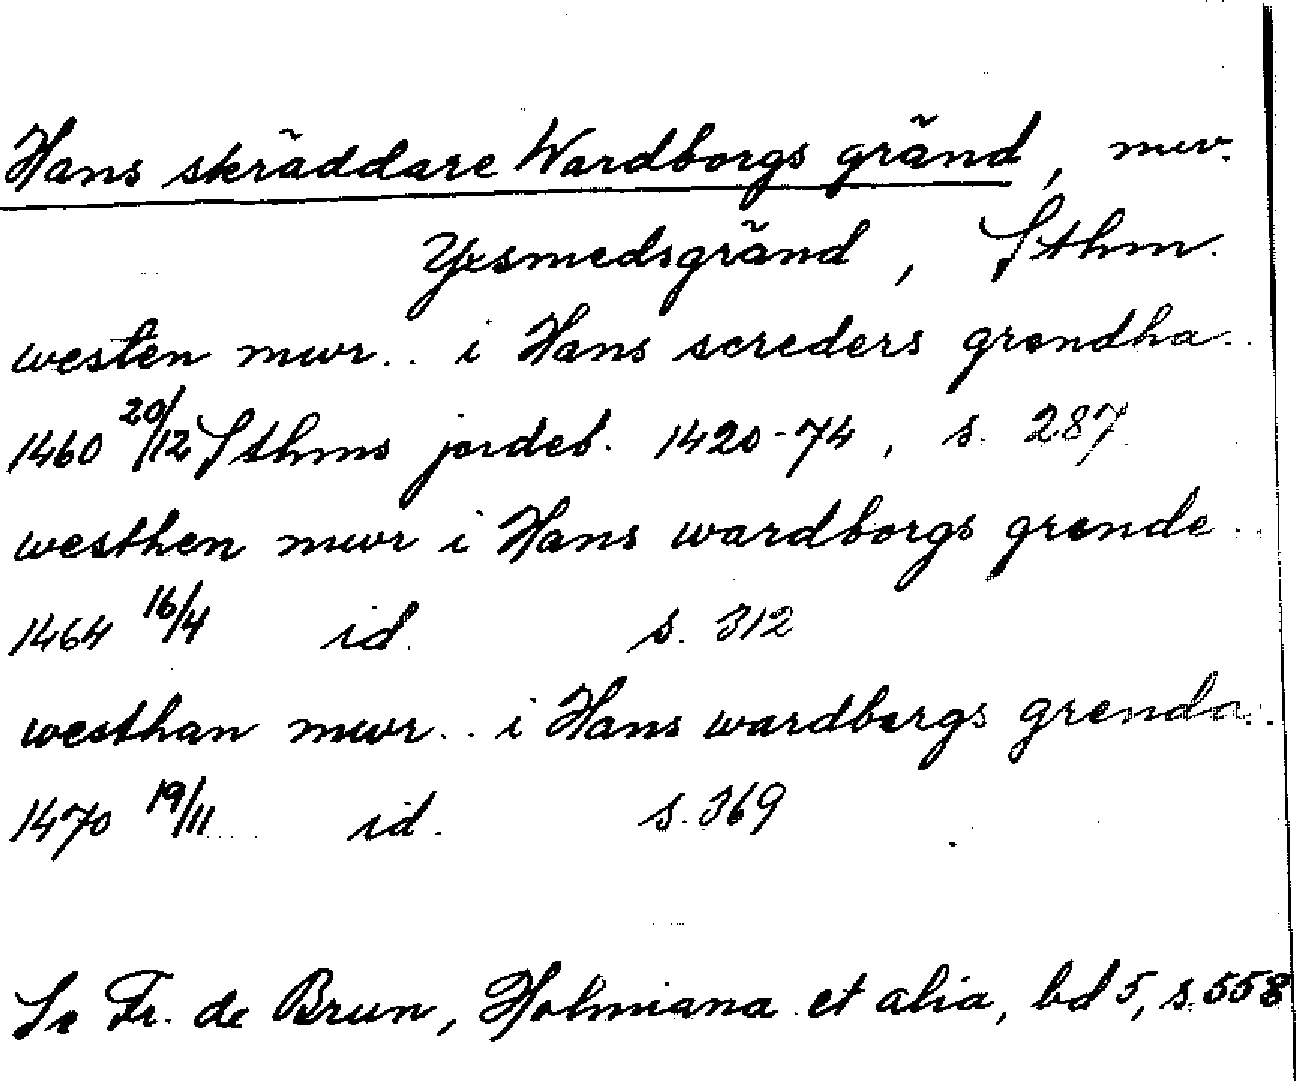 Hans skräddare Wardborgs gränd, nuv.
Yxsmedsgränd, Sthm.
westen mwr.. i Hans screders grendha..
1460 20/12 Sthms jordeb. 1420-74, s. 287
westhen mwr i Hans wardborgs grende..
1464 16/4 id. s. 312
westhan mwr.. i Hans wardbergs grenda..
1470 19/11 id. s. 369
Se Fr. de Brun, Holmiana et alia, bd 5, s. 558